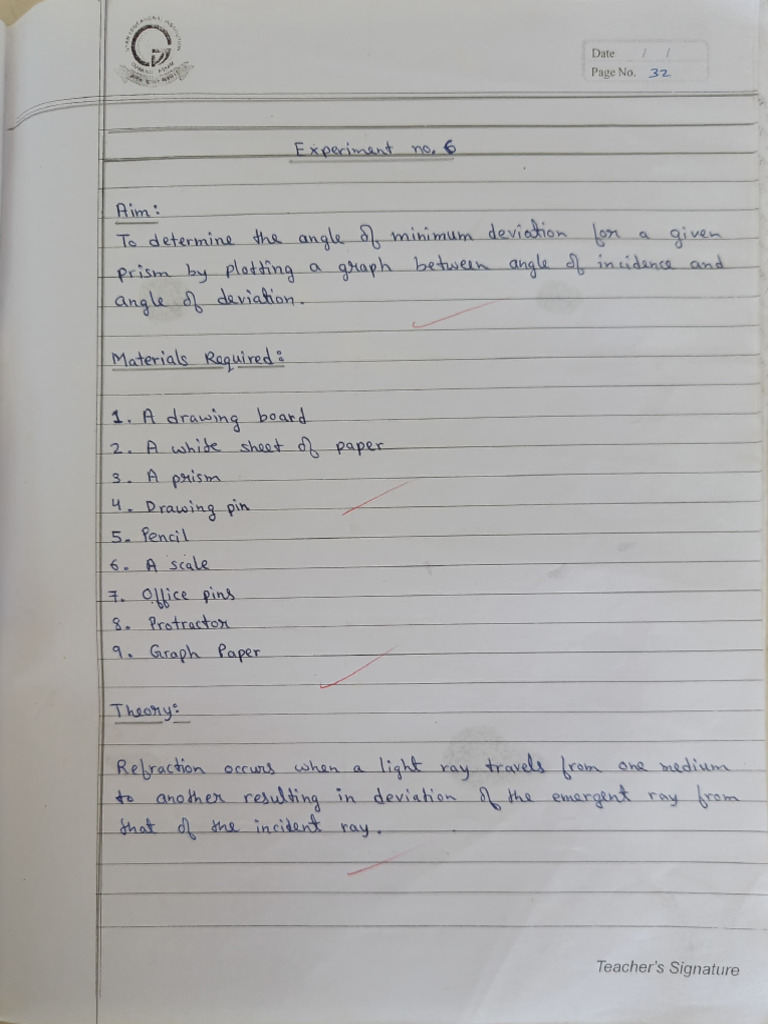 Date / /
Page No. 32
Experiment no. 6
Aim:
To determine the angle of minimum deviation for a given
prism by plotting a graph between angle of incidence and
angle of deviation.
Materials Required:
1. A drawing board
2. A white sheet of paper
3. A prism
4. Drawing pin
5. Pencil
6. A scale
7. Office pins
8. Protractor
9. Graph Paper
Theory:
Refraction occurs when a light ray travels from one medium
to another resulting in deviation of the emergent ray from
that of the incident ray.
Teacher's Signature